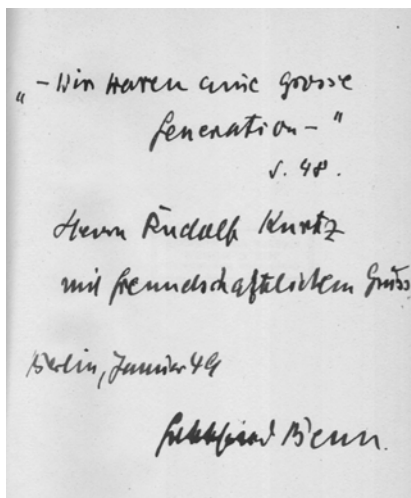 „ – Wir waren eine grosse
Generation – "
S. 48.
Herrn Rudolf Kurtz
mit freundschaftlichem Gruss
Berlin, Januar 49
Gottfried Benn.